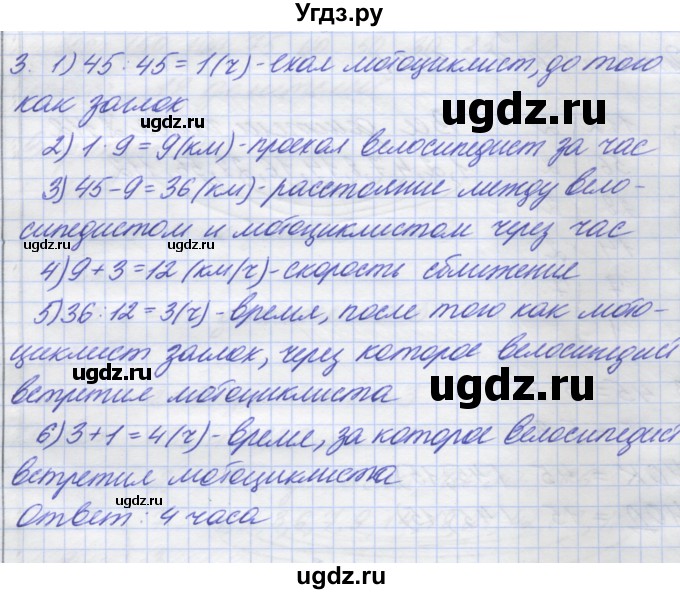 Угдз.ру
3. 1) 45 : 45 = 1 (ч) - ехал мотоциклист, до того
как заглох
ugdz.ru
ugdz.ru
2) 1 · 9 = 9 (км) - проехал велосипедист за час
3) 45 - 9 = 36 (км) - расстояние между вело-
сипедистом и мотоциклистом через час
ugdz.ru
ugdz.ru
4) 9 + 3 = 12 (км/ч) - скорость сближение
5) 36 : 12 = 3 (ч) - время, после того как мото-
циклист заглох, через которое велосипедист
ugdz.ru
ugdz.ru
встретил мотоциклиста
6) 3 + 1 = 4 (ч) - время, за которое велосипедист
встретил мотоциклиста
ugdz.ru
Ответ: 4 часа
ugdz.ru